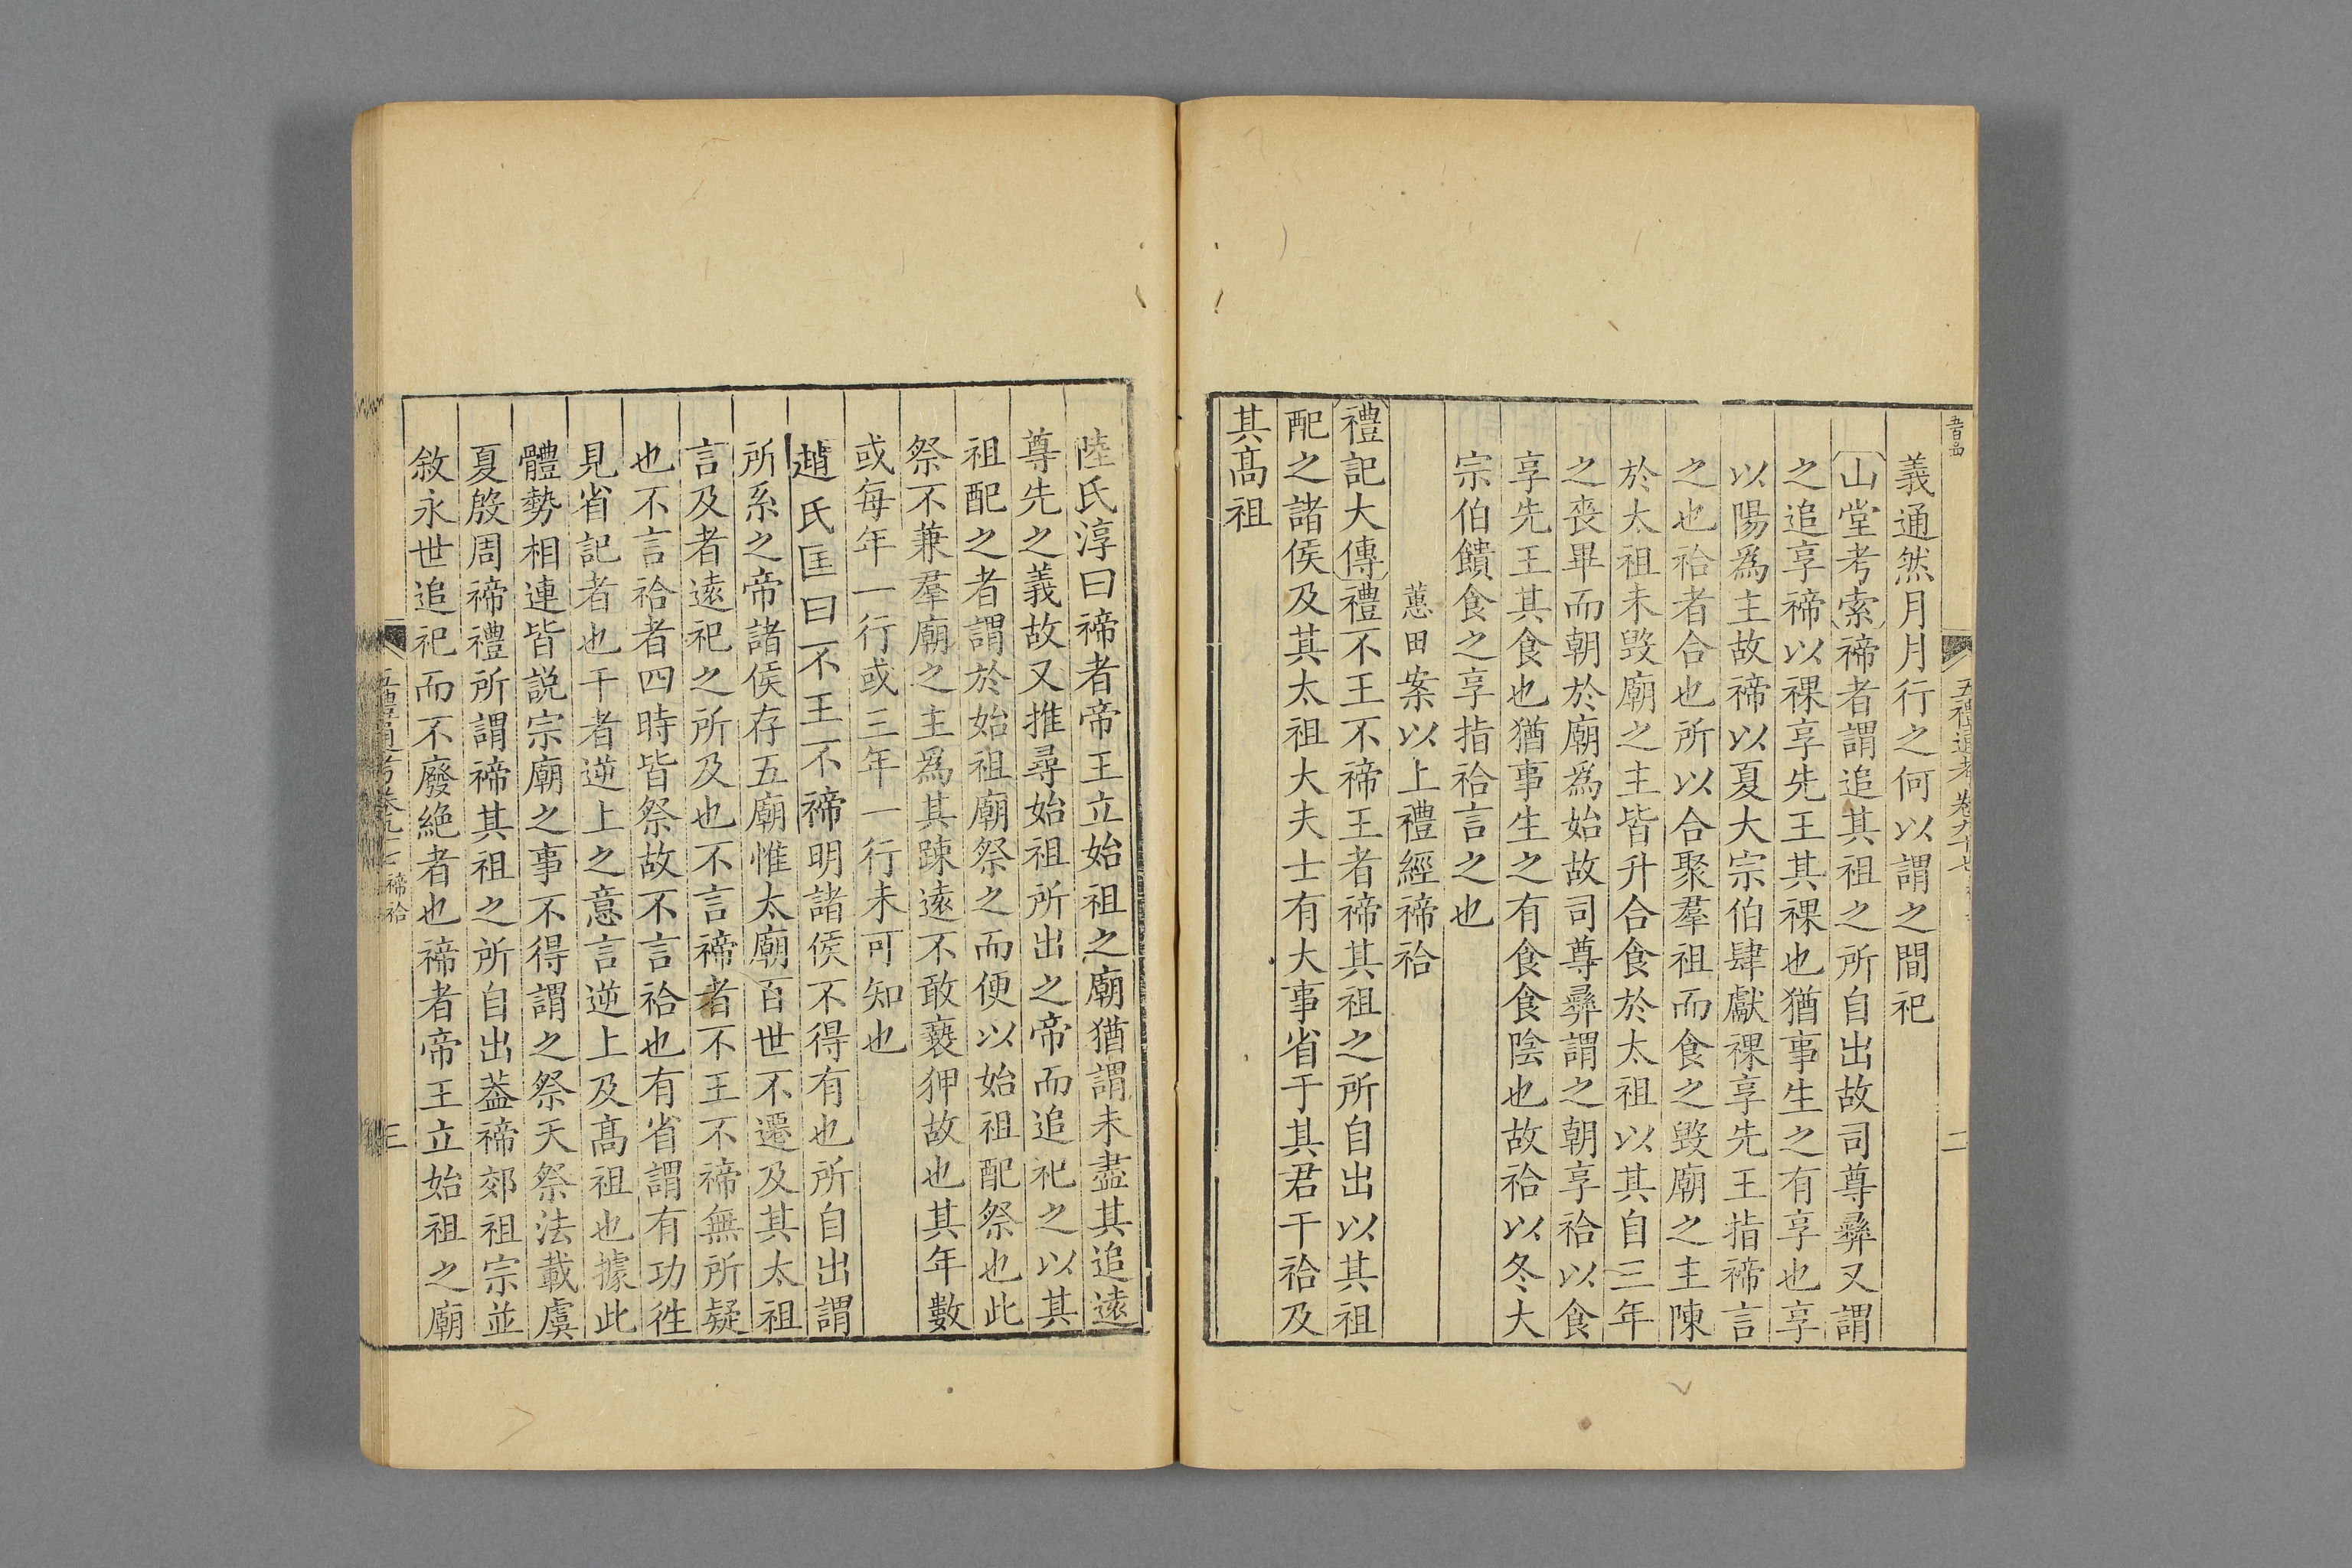 五禮通考卷九十七
二
義通然月月行之何以謂之間祀
山堂考索禘者謂追其祖之所自出故司尊彝又謂
之追享禘以祼享先王其祼也猶事生之有享也享
以陽爲主故禘以夏大宗伯肆獻祼享先王指禘言
之也祫者合也所以合聚羣祖而食之毀廟之主陳
於太祖未毀廟之主皆升合食於太祖以其自三年
之喪畢而朝於廟爲始故司尊彝謂之朝享祫以食
享先王其食也猶事生之有食食陰也故祫以冬大
宗伯饋食之享指祫言之也
蕙田案以上禮經禘祫
禮記大傳禮不王不禘王者禘其祖之所自出以其祖
配之諸侯及其太祖大夫士有大事省于其君干祫及
其髙祖
陸氏淳曰禘者帝王立始祖之廟猶謂未盡其追遠
尊先之義故又推尋始祖所出之帝而追祀之以其
祖配之者謂於始祖廟祭之而便以始祖配祭也此
祭不兼羣廟之主爲其踈遠不敢褻狎故也其年數
或每年一行或三年一行未可知也
趙氏匡曰不王不禘明諸侯不得有也所自出謂
所系之帝諸侯存五廟惟太廟百世不遷及其太祖
言及者遠祀之所及也不言禘者不王不禘無所疑
也不言祫者四時皆祭故不言祫也有省謂有功徃
見省記者也干者逆上之意言逆上及髙祖也據此
體勢相連皆説宗廟之事不得謂之祭天祭法載虞
夏殷周禘禮所謂禘其祖之所自出葢禘郊祖宗並
敘永世追祀而不廢絶者也禘者帝王立始祖之廟
五禮通考卷九十七 禘祫
三